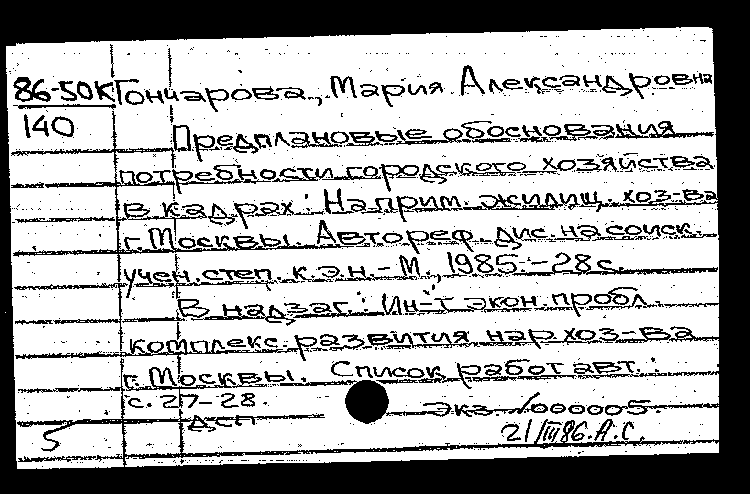 86-50К Гончарова, Мария Александровна
140
Предплановые обоснования
потребности городского хозяйства
в кадрах: На прим. жилищ. хоз-ва
г. Москвы. Автореф. дис. на соиск.
учен. степ. к.э.н. - М., 1985. - 28 с.
В надзаг.: Ин-т экон. пробл.
комплекс. развития нар хоз-ва
г. Москвы. Список работ авт.:
с. 27-28.
ДСП Экз. 000005.
5 21/III 86. А.С.